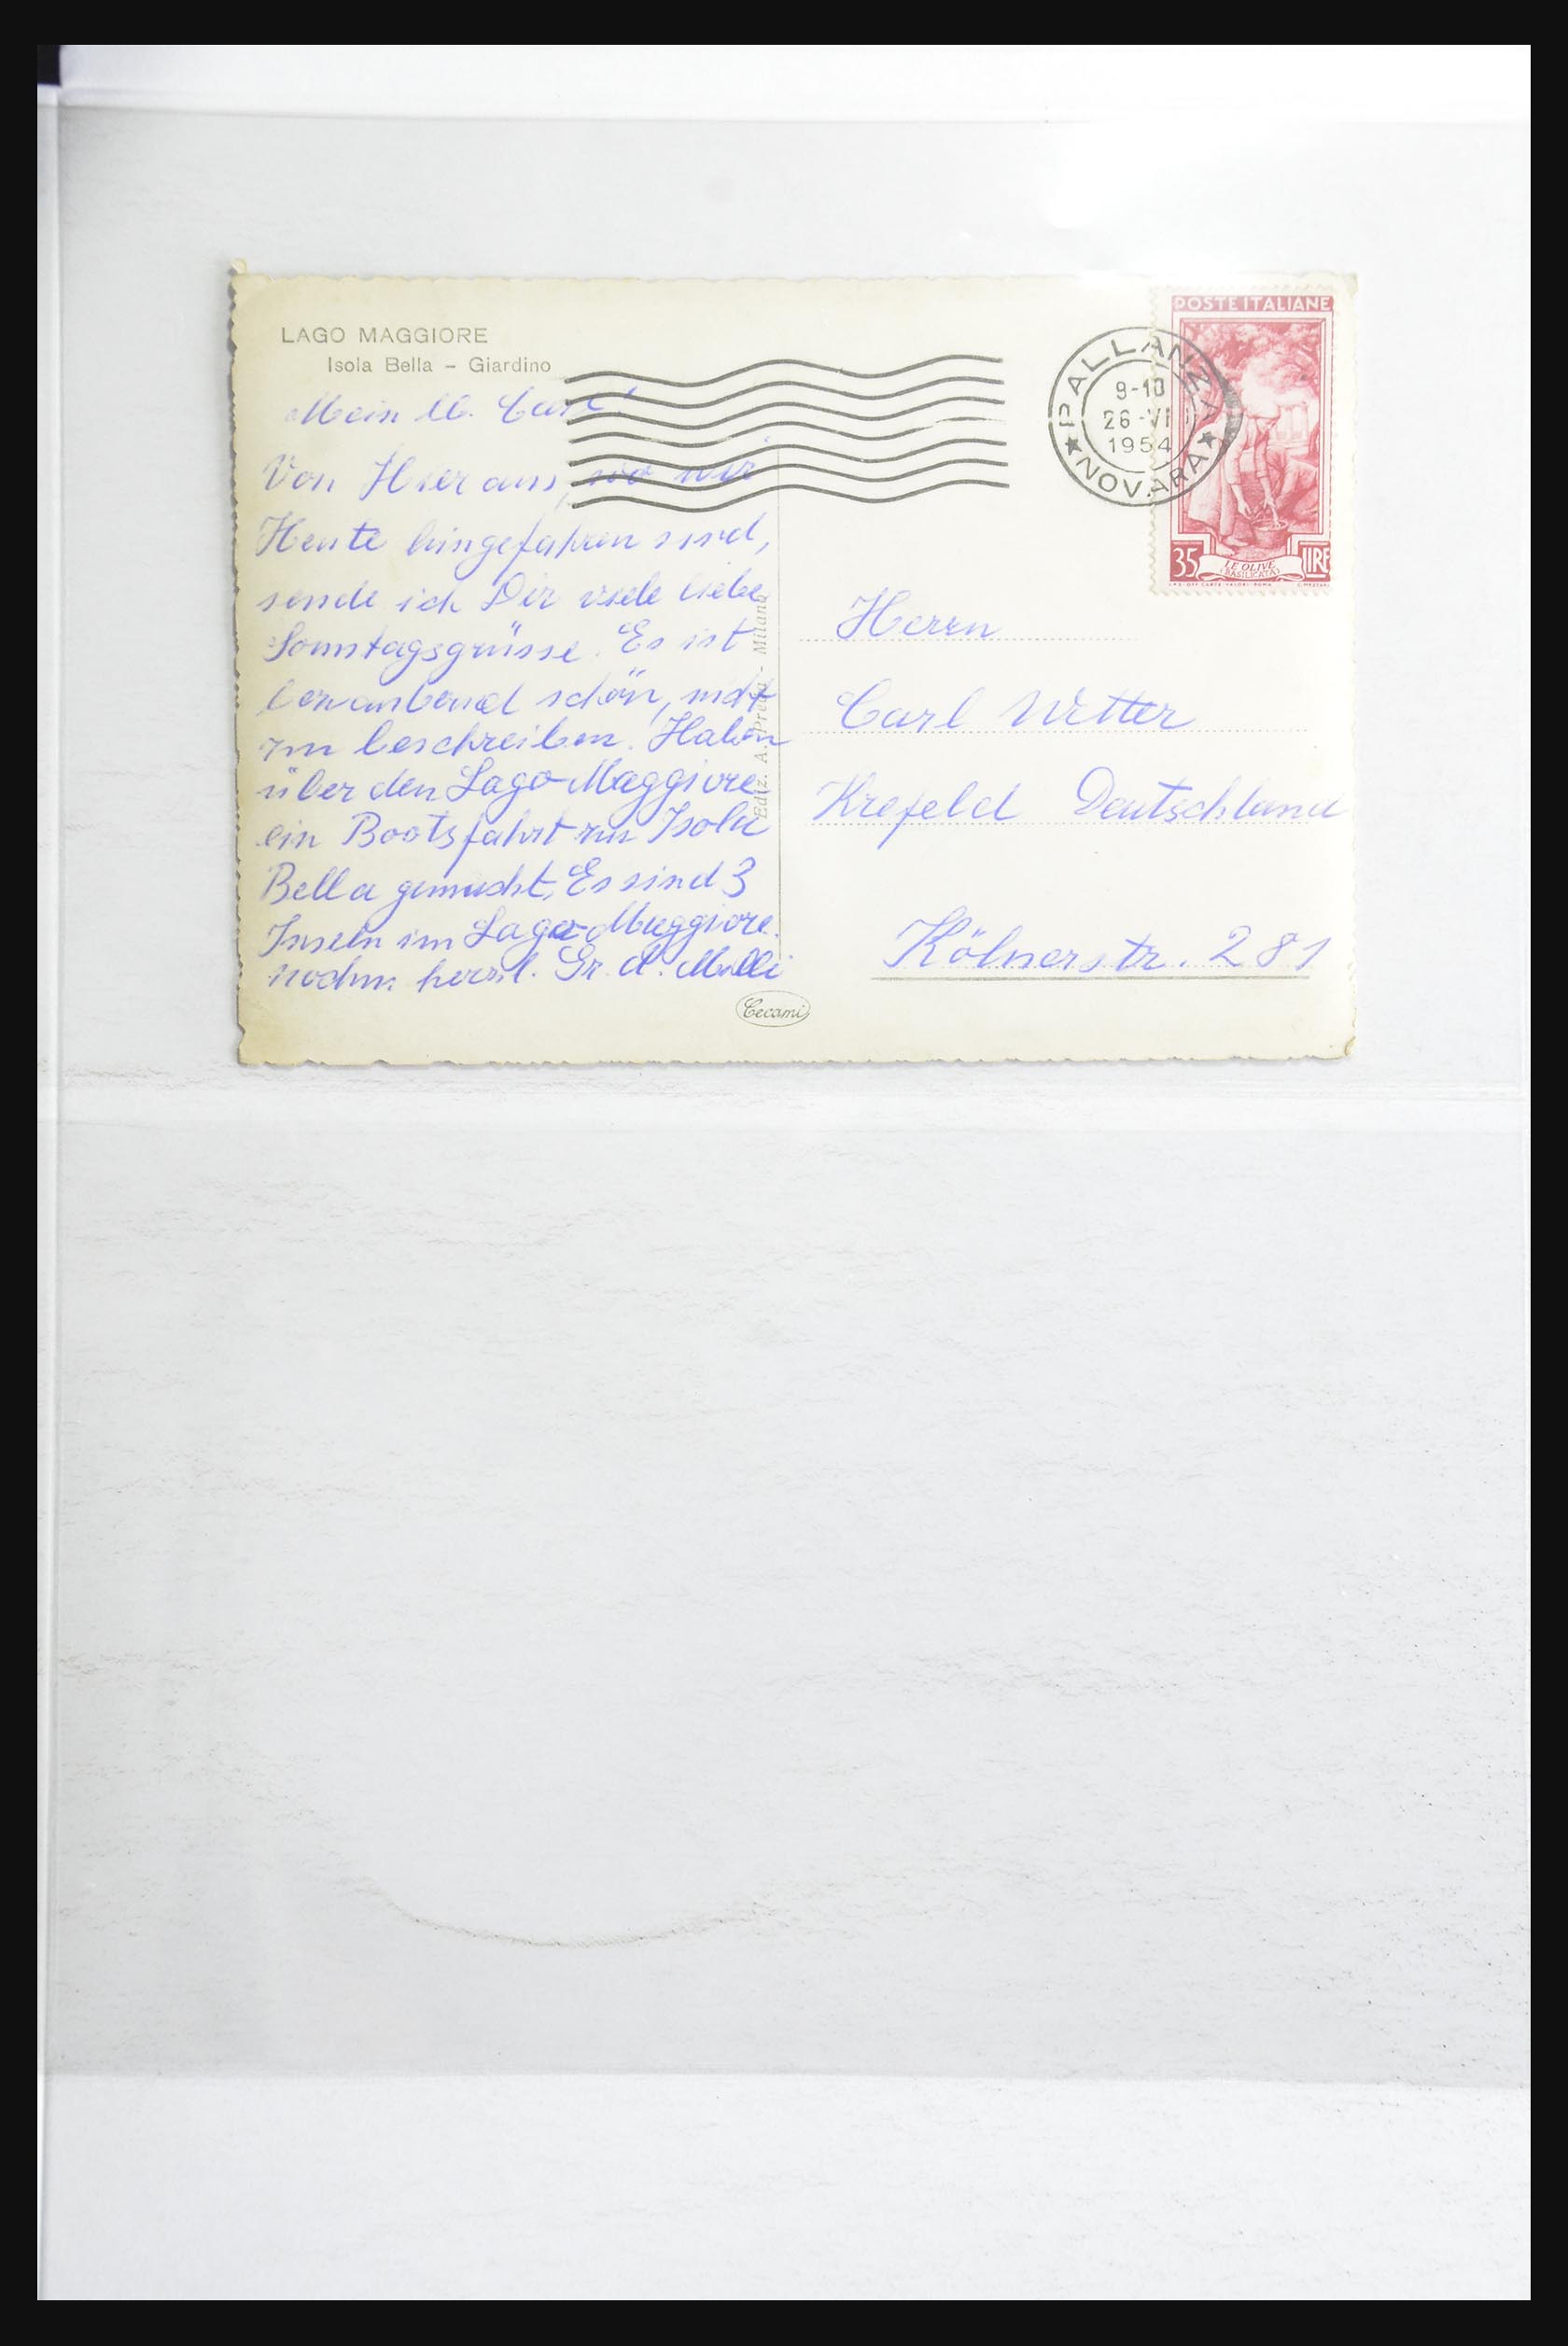 LAGO MAGGIORE
Isola Bella – Giardino
Mein lb. Carl!
Von Hier aus, wo wir
Heute hingefahren sind,
sende ich Dir viele liebe
Sonntagsgrüsse. Es ist
schön, nicht
zu beschreiben. Haben
über den Lago-Maggiore
ein Bootsfahrt zu Isola
Bella gemacht, Es sind 3
Inseln im Lago-Maggiore.
nochm. herzl. Gr. d. Milli
Ediz. A. Preda - Milano
Cecami
POSTE ITALIANE
35 LIRE
LE OLIVE
(BASILICATA)
PALLANZA
9-10
26-VI
1954
NOVARA
Herrn
Carl Vetter
Krefeld Deutschland
Kölnerstr. 281